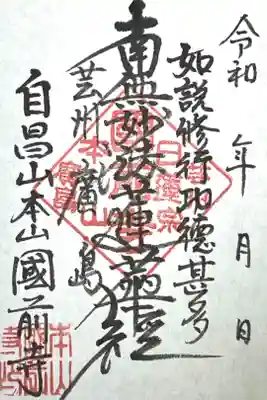 令和　年　月　日
如説修行功徳甚多
南無妙法蓮華経
芸州廣島
自昌山本山國前寺